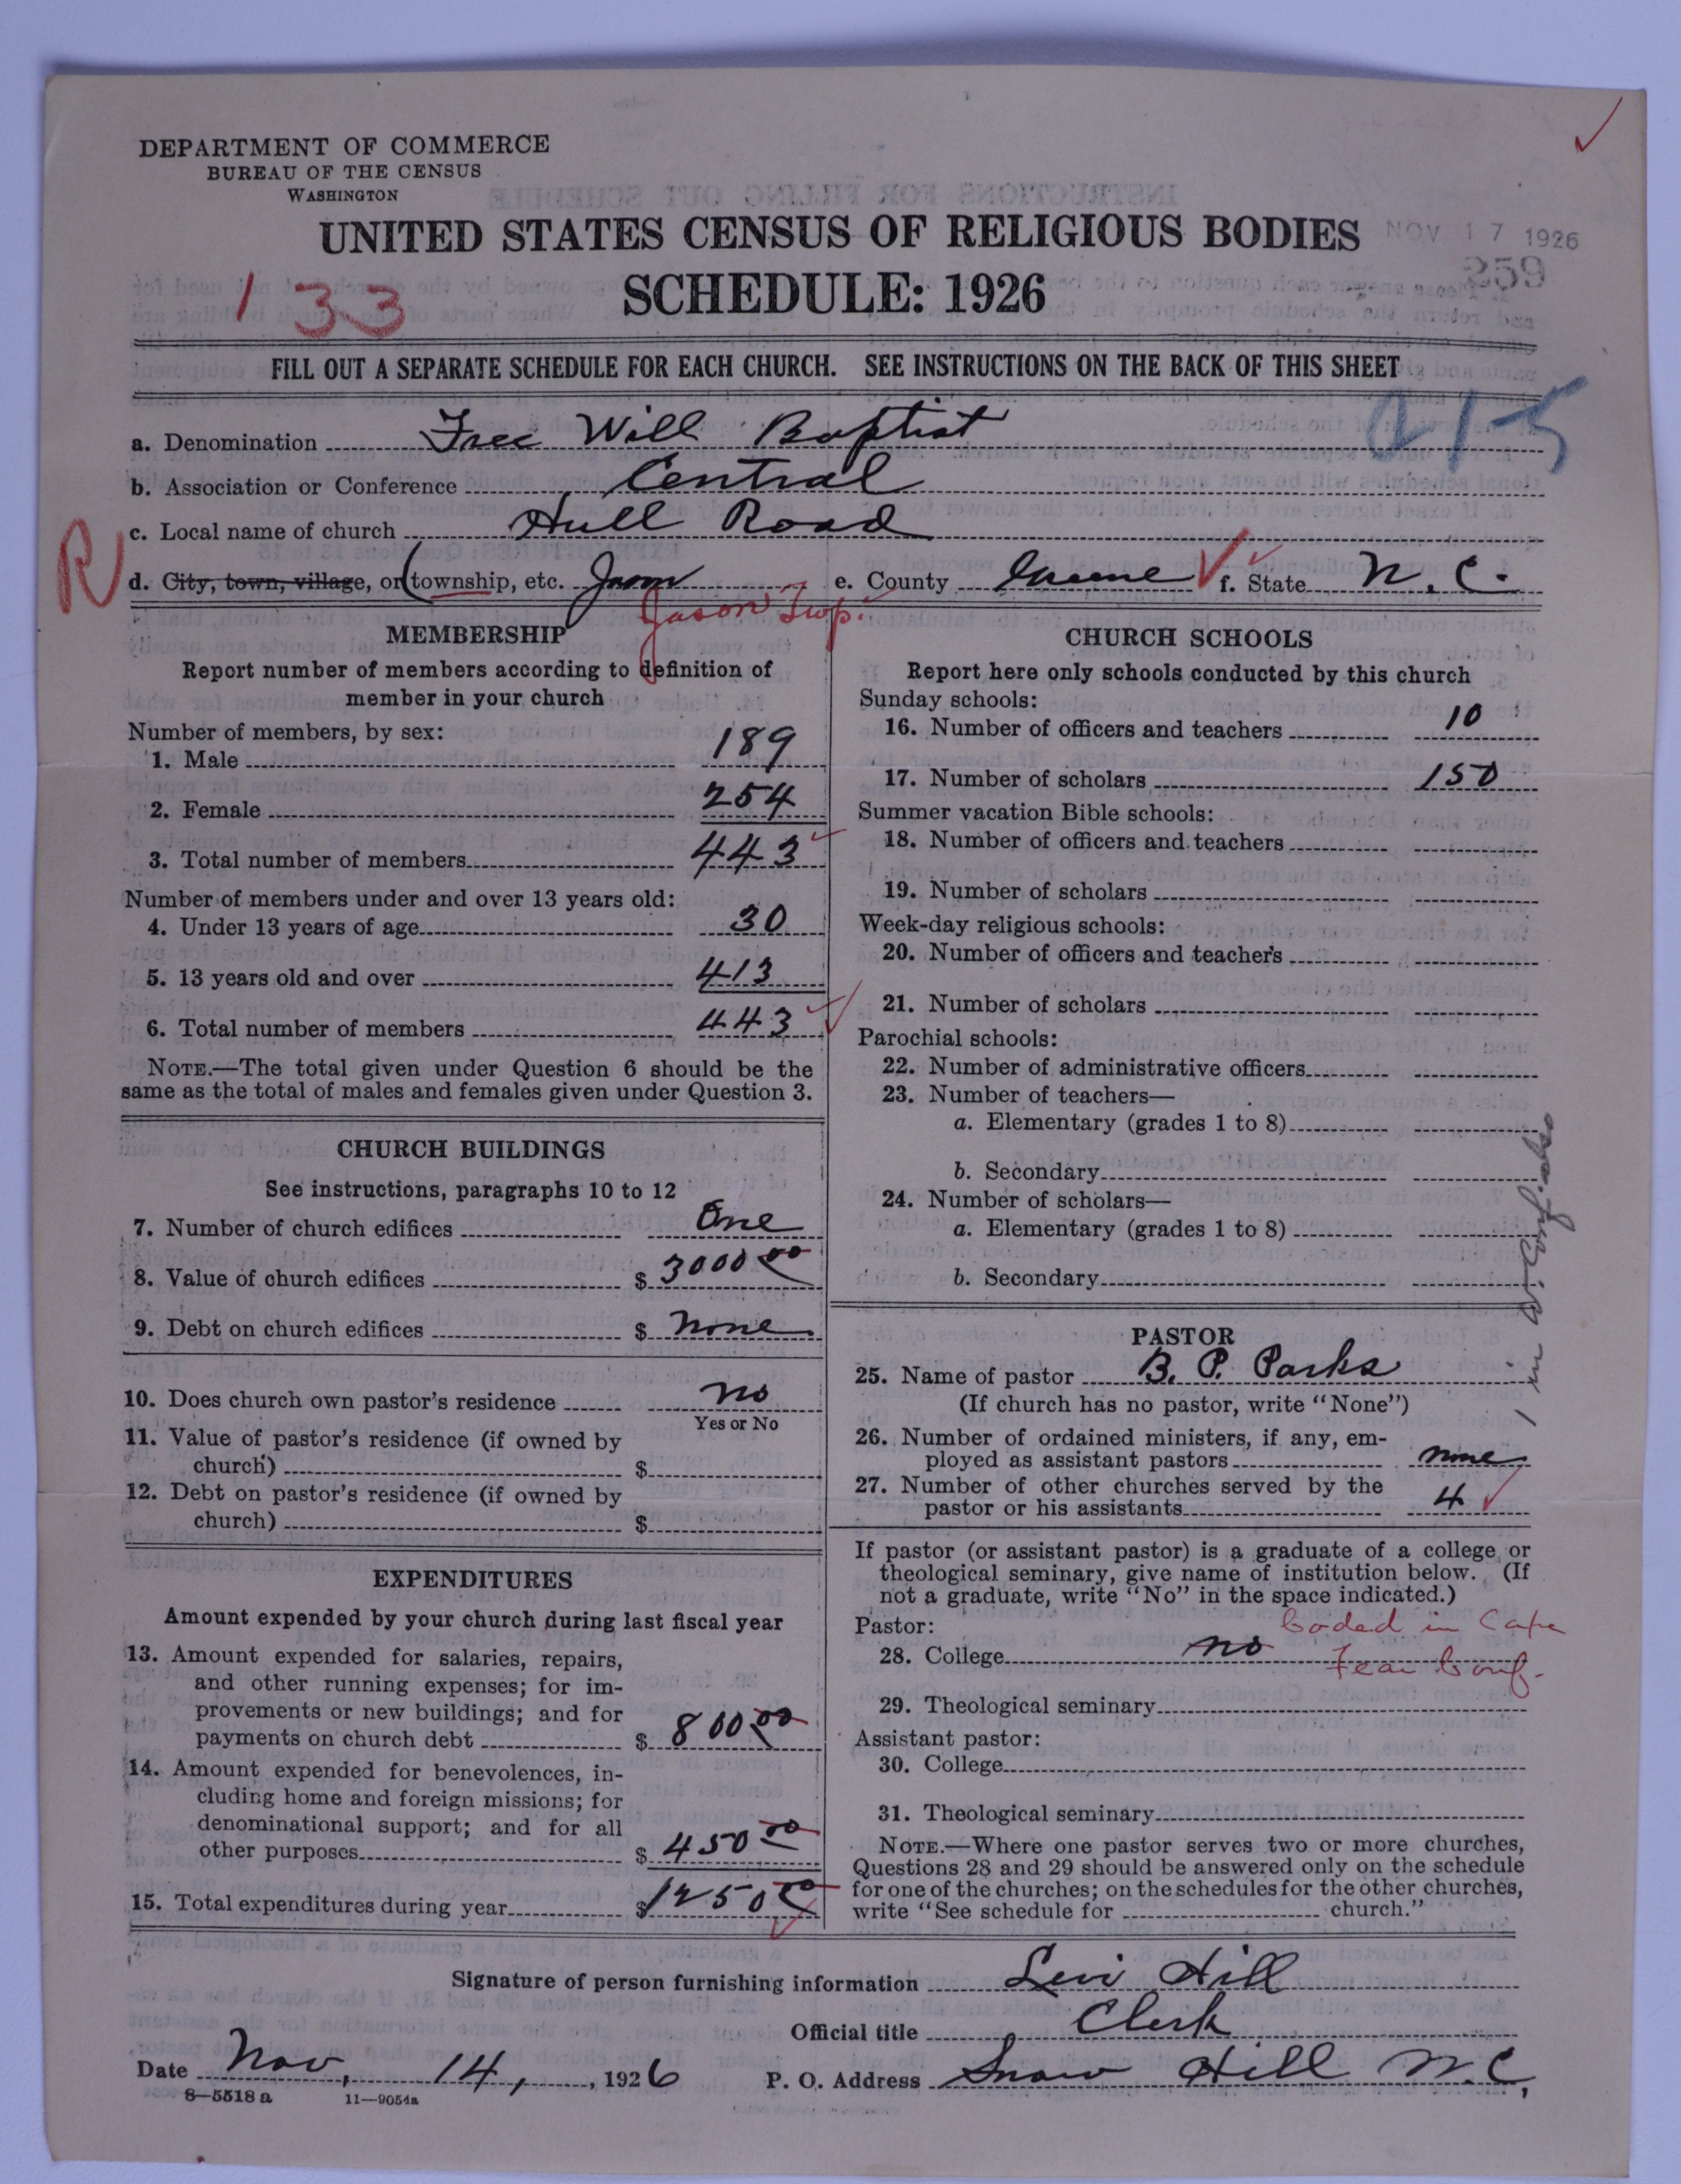 DEPARTMENT OF COMMERCE
BUREAU OF THE CENSUS
WASHINGTON
UNITED STATES CENSUS OF RELIGIOUS BODIES
NOV 17 1926
SCHEDULE: 1926
259
133
FILL OUT A SEPARATE SCHEDULE FOR EACH CHURCH. SEE INSTRUCTIONS ON THE BACK OF THIS SHEET
a. Denomination Free Will Baptist
21-5
b. Association or Conference Central
c. Local name of church Hull Road
R
d. City, town, village, or (township, etc. Jason e. County Greene f. State N. C.
Jason Twp.
MEMBERSHIP
Report number of members according to definition of
member in your church
Number of members, by sex:
1. Male 189
2. Female 254
3. Total number of members 443
Number of members under and over 13 years old:
4. Under 13 years of age 30
5. 13 years old and over 413
6. Total number of members 443
NOTE.—The total given under Question 6 should be the
same as the total of males and females given under Question 3.
CHURCH BUILDINGS
See instructions, paragraphs 10 to 12
7. Number of church edifices One
8. Value of church edifices $ 3000 00
9. Debt on church edifices $ none
10. Does church own pastor's residence no
Yes or No
11. Value of pastor's residence (if owned by
church) $
12. Debt on pastor's residence (if owned by
church) $
EXPENDITURES
Amount expended by your church during last fiscal year
13. Amount expended for salaries, repairs,
and other running expenses; for im-
provements or new buildings; and for
payments on church debt $ 800 00
14. Amount expended for benevolences, in-
cluding home and foreign missions; for
denominational support; and for all
other purposes $ 450 00
15. Total expenditures during year $ 1250 00
CHURCH SCHOOLS
Report here only schools conducted by this church
Sunday schools:
16. Number of officers and teachers 10
17. Number of scholars 150
Summer vacation Bible schools:
18. Number of officers and teachers
19. Number of scholars
Week-day religious schools:
20. Number of officers and teachers
21. Number of scholars
Parochial schools:
22. Number of administrative officers
23. Number of teachers—
a. Elementary (grades 1 to 8)
b. Secondary
24. Number of scholars—
a. Elementary (grades 1 to 8)
b. Secondary
1 in W. Conf. also
PASTOR
25. Name of pastor B. P. Parks
(If church has no pastor, write "None")
26. Number of ordained ministers, if any, em-
ployed as assistant pastors none
27. Number of other churches served by the
pastor or his assistants 4
If pastor (or assistant pastor) is a graduate of a college or
theological seminary, give name of institution below. (If
not a graduate, write "No" in the space indicated.)
Pastor:
Coded in Cape
28. College no
Fear Conf.
29. Theological seminary
Assistant pastor:
30. College
31. Theological seminary
NOTE.—Where one pastor serves two or more churches,
Questions 28 and 29 should be answered only on the schedule
for one of the churches; on the schedules for the other churches,
write "See schedule for church."
Signature of person furnishing information Levi Hill
Official title Clerk
Date Nov, 14, 1926 P. O. Address Snow Hill N. C,
8—5518 a 11—9054a